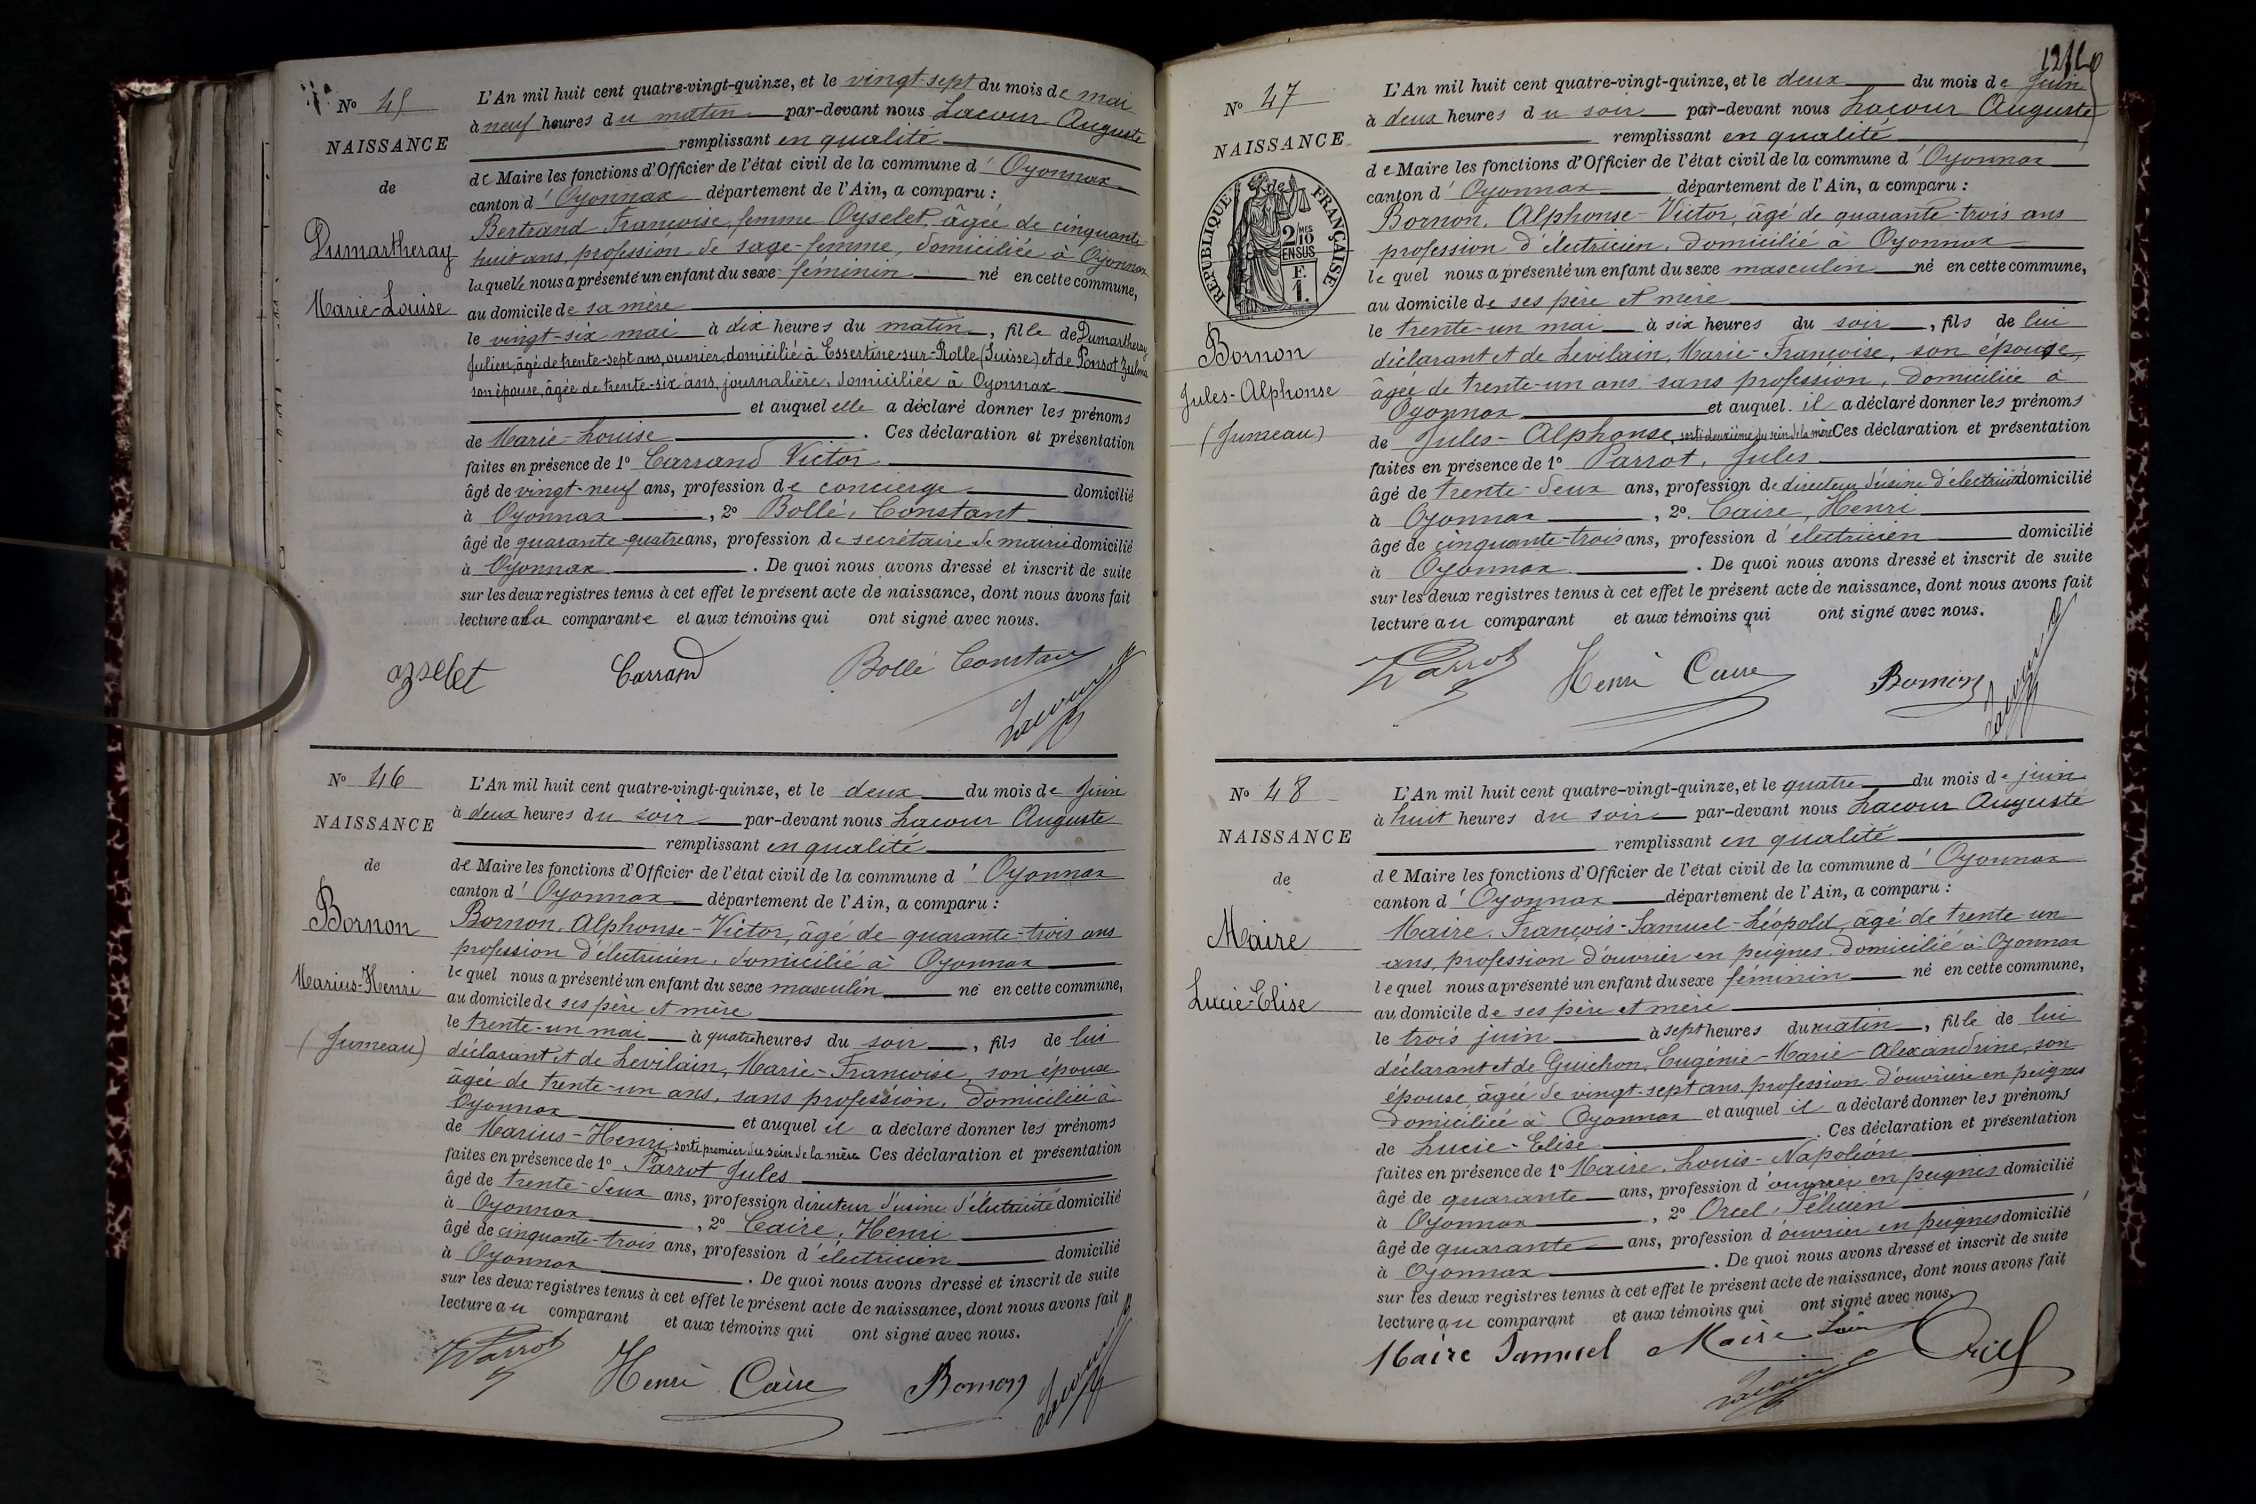 N° 45
NAISSANCE
de
Dumartheray
Marie-Louise
L'An mil huit cent quatre-vingt-quinze, et le vingt-sept du mois de mai
à neuf heures du matin par-devant nous Lacour Auguste
remplissant en qualité
de Maire les fonctions d'Officier de l'état civil de la commune d'Oyonnax
canton d'Oyonnax département de l'Ain, a comparu :
Bertrand Françoise, femme Oyselet, âgée de cinquante
huit ans, profession de sage-femme, domiciliée à Oyonnax
laquelle nous a présenté un enfant du sexe féminin né en cette commune,
au domicile de sa mère
le vingt-six mai à dix heures du matin, fille de Dumartheray
Julien, âgé de trente-sept ans, ouvrier, domicilié à Essertine-sur-Rolle (Suisse) et de Ponsot Zulma
son épouse, âgée de trente-six ans, journalière, domiciliée à Oyonnax
et auquel elle a déclaré donner les prénoms
de Marie-Louise. Ces déclaration et présentation
faites en présence de 1° Carrand Victor
âgé de vingt-neuf ans, profession de concierge domicilié
à Oyonnax, 2° Bollé, Constant
âgé de quarante-quatre ans, profession de secrétaire de mairie domicilié
à Oyonnax. De quoi nous avons dressé et inscrit de suite
sur les deux registres tenus à cet effet le présent acte de naissance, dont nous avons fait
lecture à la comparante et aux témoins qui ont signé avec nous.
oyselet Carrand Bollé Constant
Lacour
N° 46
NAISSANCE
de
Bornon
Marius-Henri
(Jumeau)
L'An mil huit cent quatre-vingt-quinze, et le deux du mois de juin
à deux heures du soir par-devant nous Lacour Auguste
remplissant en qualité
de Maire les fonctions d'Officier de l'état civil de la commune d'Oyonnax
canton d'Oyonnax département de l'Ain, a comparu :
Bornon, Alphonse-Victor, âgé de quarante-trois ans
profession d'électricien, domicilié à Oyonnax
lequel nous a présenté un enfant du sexe masculin né en cette commune,
au domicile de ses père et mère
le trente-un mai à quatre heures du soir, fils de lui
déclarant et de Levilain, Marie-Françoise, son épouse
âgée de trente-un ans, sans profession, domiciliée à
Oyonnax et auquel il a déclaré donner les prénoms
de Marius-Henri sorti premier du sein de la mère Ces déclaration et présentation
faites en présence de 1° Parrot Jules
âgé de trente-deux ans, profession directeur d'usine d'électricité domicilié
à Oyonnax, 2° Caire, Henri
âgé de cinquante-trois ans, profession d'électricien domicilié
à Oyonnax. De quoi nous avons dressé et inscrit de suite
sur les deux registres tenus à cet effet le présent acte de naissance, dont nous avons fait
lecture au comparant et aux témoins qui ont signé avec nous.
Parrot Henri Caire Bornon Lacour
N° 47
NAISSANCE
de
RÉPUBLIQUE FRANÇAISE
2/10 MES
EN SUS
F.
1.
Bornon
Jules-Alphonse
(Jumeau)
L'An mil huit cent quatre-vingt-quinze, et le deux du mois de Juin
à deux heures du soir par-devant nous Lacour Auguste
remplissant en qualité
de Maire les fonctions d'Officier de l'état civil de la commune d'Oyonnax
canton d'Oyonnax département de l'Ain, a comparu :
Bornon, Alphonse-Victor, âgé de quarante-trois ans
profession d'électricien, domicilié à Oyonnax
lequel nous a présenté un enfant du sexe masculin né en cette commune,
au domicile de ses père et mère
le trente-un mai à six heures du soir, fils de lui
déclarant et de Levilain, Marie-Françoise, son épouse,
âgée de trente-un ans sans profession, domiciliée à
Oyonnax et auquel il a déclaré donner les prénoms
de Jules-Alphonse, sorti deuxième du sein de la mère Ces déclaration et présentation
faites en présence de 1° Parrot, Jules
âgé de trente-deux ans, profession de directeur d'usine d'électricité domicilié
à Oyonnax, 2° Caire, Henri
âgé de cinquante-trois ans, profession d'électricien domicilié
à Oyonnax. De quoi nous avons dressé et inscrit de suite
sur les deux registres tenus à cet effet le présent acte de naissance, dont nous avons fait
lecture au comparant et aux témoins qui ont signé avec nous.
Parrot Henri Caire Bornon Lacour
N° 48
NAISSANCE
de
Maire
Lucie-Elise
L'An mil huit cent quatre-vingt-quinze, et le quatre du mois de juin
à huit heures du soir par-devant nous Lacour Auguste
remplissant en qualité
de Maire les fonctions d'Officier de l'état civil de la commune d'Oyonnax
canton d'Oyonnax département de l'Ain, a comparu :
Maire, François-Samuel-Léopold, âgé de trente un
ans, profession d'ouvrier en peignes, domicilié à Oyonnax
lequel nous a présenté un enfant du sexe féminin né en cette commune,
au domicile de ses père et mère
le trois juin à sept heures du matin, fille de lui
déclarant et de Guichon, Eugénie-Marie-Alexandrine, son
épouse, âgée de vingt-sept ans, profession d'ouvrière en peignes
domiciliée à Oyonnax et auquel il a déclaré donner les prénoms
de Lucie-Elise. Ces déclaration et présentation
faites en présence de 1° Maire, Louis-Napoléon
âgé de quarante ans, profession d'ouvrier en peignes domicilié
à Oyonnax, 2° Orcel, Félicien
âgé de quarante ans, profession d'ouvrier en peignes domicilié
à Oyonnax. De quoi nous avons dressé et inscrit de suite
sur les deux registres tenus à cet effet le présent acte de naissance, dont nous avons fait
lecture au comparant et aux témoins qui ont signé avec nous.
Maire Samuel Maire Louis Orcel
Lacour